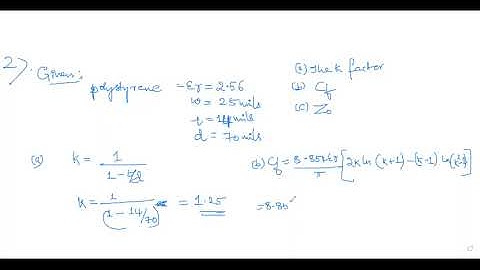 2) Given:
polystyrene - εr = 2.56
w = 25 mils
t = 14 mils
d = 70 mils
(a) the k factor
(b) Cf
(c) Z₀
(a) k = 1 / (1 - t/d)
k = 1 / (1 - 14/70) = 1.25
(b) Cf = 8.85 εr / π [2k ln (k+1) - (k-1) ln (k²-1)]
= 8.85